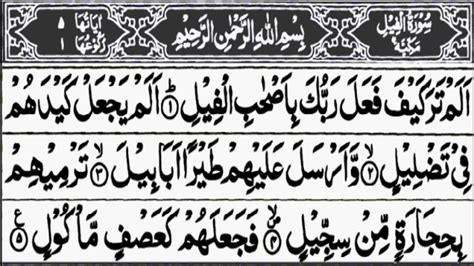 سُوْرَةُ الْفِيْلِ مَكِّيَّةٌ بِسْمِ اللهِ الرَّحْمٰنِ الرَّحِيْمِ اٰيَاتُهَا ٥ رُكُوْعُهَا ١
اَلَمْ تَرَ كَيْفَ فَعَلَ رَبُّكَ بِاَصْحٰبِ الْفِيْلِ ؕ ۝١ اَلَمْ يَجْعَلْ كَيْدَهُمْ
فِيْ تَضْلِيْلٍ ۙ ۝٢ وَّاَرْسَلَ عَلَيْهِمْ طَيْرًا اَبَابِيْلَ ۙ ۝٣ تَرْمِيْهِمْ
بِحِجَارَةٍ مِّنْ سِجِّيْلٍ ۝٤ فَجَعَلَهُمْ كَعَصْفٍ مَّاْكُوْلٍ ۝٥ ع